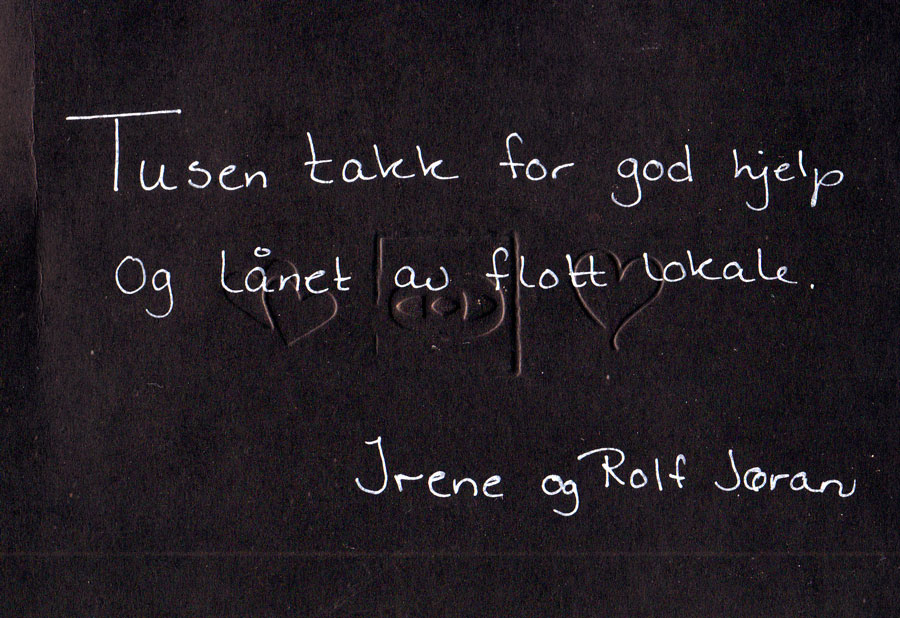 Tusen takk for god hjelp
Og lånet av flott lokale.
Irene og Rolf Jøran